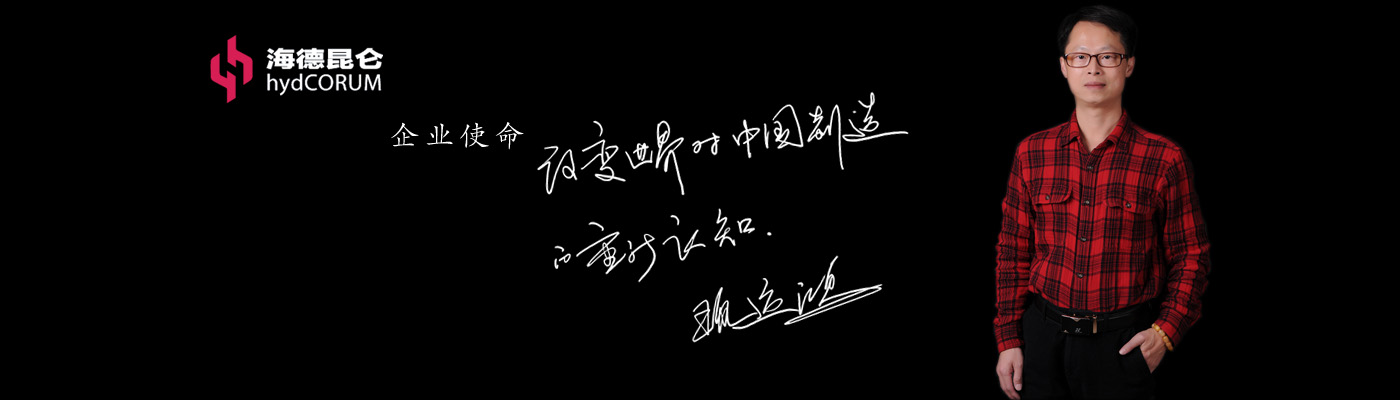 海德昆仑
hydCORUM
企业使命
改变世界对中国制造
的重新认知.